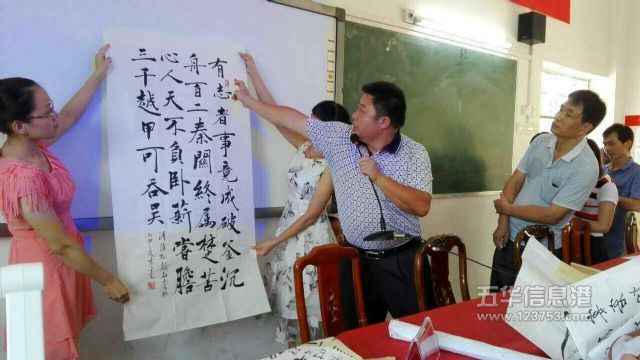 有志者事竟成破釜沉
舟百二秦關終属楚苦
心人天不負卧薪嘗膽
三千越甲可吞吴
五华信息港
www.123753.com